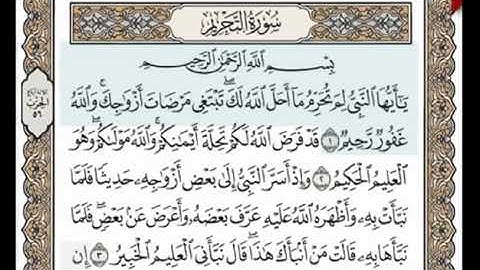 سُورَةُ التَّحْرِيمِ
بِسْمِ اللَّهِ الرَّحْمَٰنِ الرَّحِيمِ
يَا أَيُّهَا النَّبِيُّ لِمَ تُحَرِّمُ مَا أَحَلَّ اللَّهُ لَكَ ۖ تَبْتَغِي مَرْضَاتَ أَزْوَاجِكَ ۚ وَاللَّهُ
غَفُورٌ رَّحِيمٌ ١ قَدْ فَرَضَ اللَّهُ لَكُمْ تَحِلَّةَ أَيْمَانِكُمْ ۚ وَاللَّهُ مَوْلَاكُمْ ۖ وَهُوَ
الْعَلِيمُ الْحَكِيمُ ٢ وَإِذْ أَسَرَّ النَّبِيُّ إِلَىٰ بَعْضِ أَزْوَاجِهِ حَدِيثًا فَلَمَّا
نَبَّأَتْ بِهِ وَأَظْهَرَهُ اللَّهُ عَلَيْهِ عَرَّفَ بَعْضَهُ وَأَعْرَضَ عَن بَعْضٍ ۖ فَلَمَّا
نَبَّأَهَا بِهِ قَالَتْ مَنْ أَنبَأَكَ هَٰذَا ۖ قَالَ نَبَّأَنِيَ الْعَلِيمُ الْخَبِيرُ ٣ إِن
الحزب
٥٦